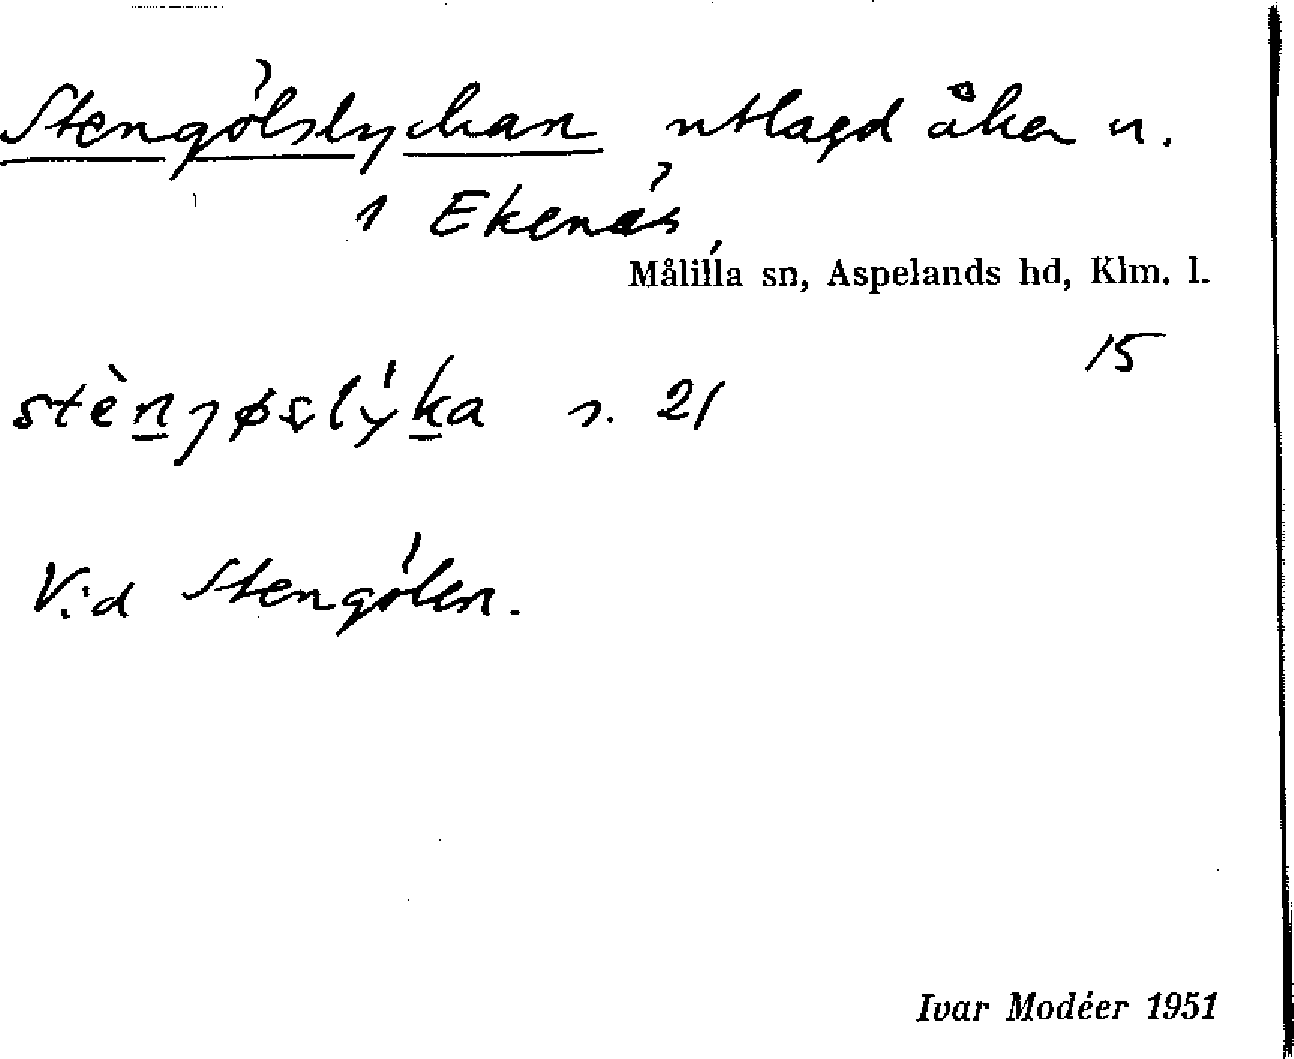 Stengölslyckan utlagd åker n.
1 Ekenäs
Målilla sn, Aspelands hd, Klm. l.
15
stèn̲ȷøʂlý́k̲a s. 21
Vid Stengölen.
Ivar Modéer 1951